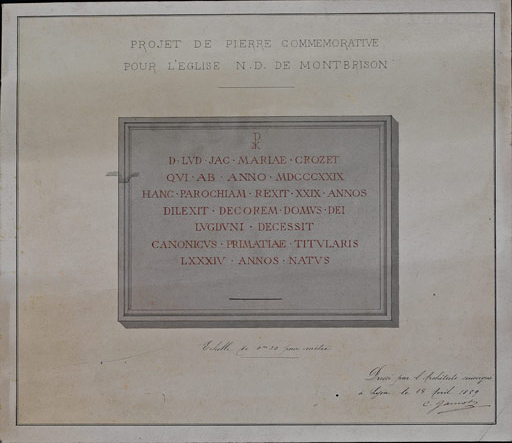 PROJET DE PIERRE COMMEMORATIVE
POUR L'EGLISE N.D. DE MONTBRISON
D·LVD·JAC·MARIAE·CROZET
QVI·AB·ANNO·MDCCCXXIX
HANC·PAROCHIAM·REXIT·XXIX·ANNOS
DILEXIT·DECOREM·DOMVS·DEI
LVGDVNI·DECESSIT
CANONICVS·PRIMATIAE·TITVLARIS
LXXXIV·ANNOS·NATVS
Echelle de 0m20 pour mètre
Dressé par l'Architecte soussigné
à Lyon le 18 Avril 1859